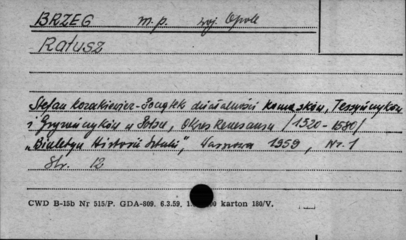 BRZEG m.p. woj. Opole
Ratusz
Stefan Kozakiewicz - Początek działalności Komasków, Tessyńczyków
i Gryzończyków w Polsce, Okres Renesansu /1520-1580/
„Biuletyn Historii Sztuki", Warszawa 1959, Nr. 1
Str. 12
CWD B-15b Nr 515/P. GDA-809. 6.2.59, karton 180/V.